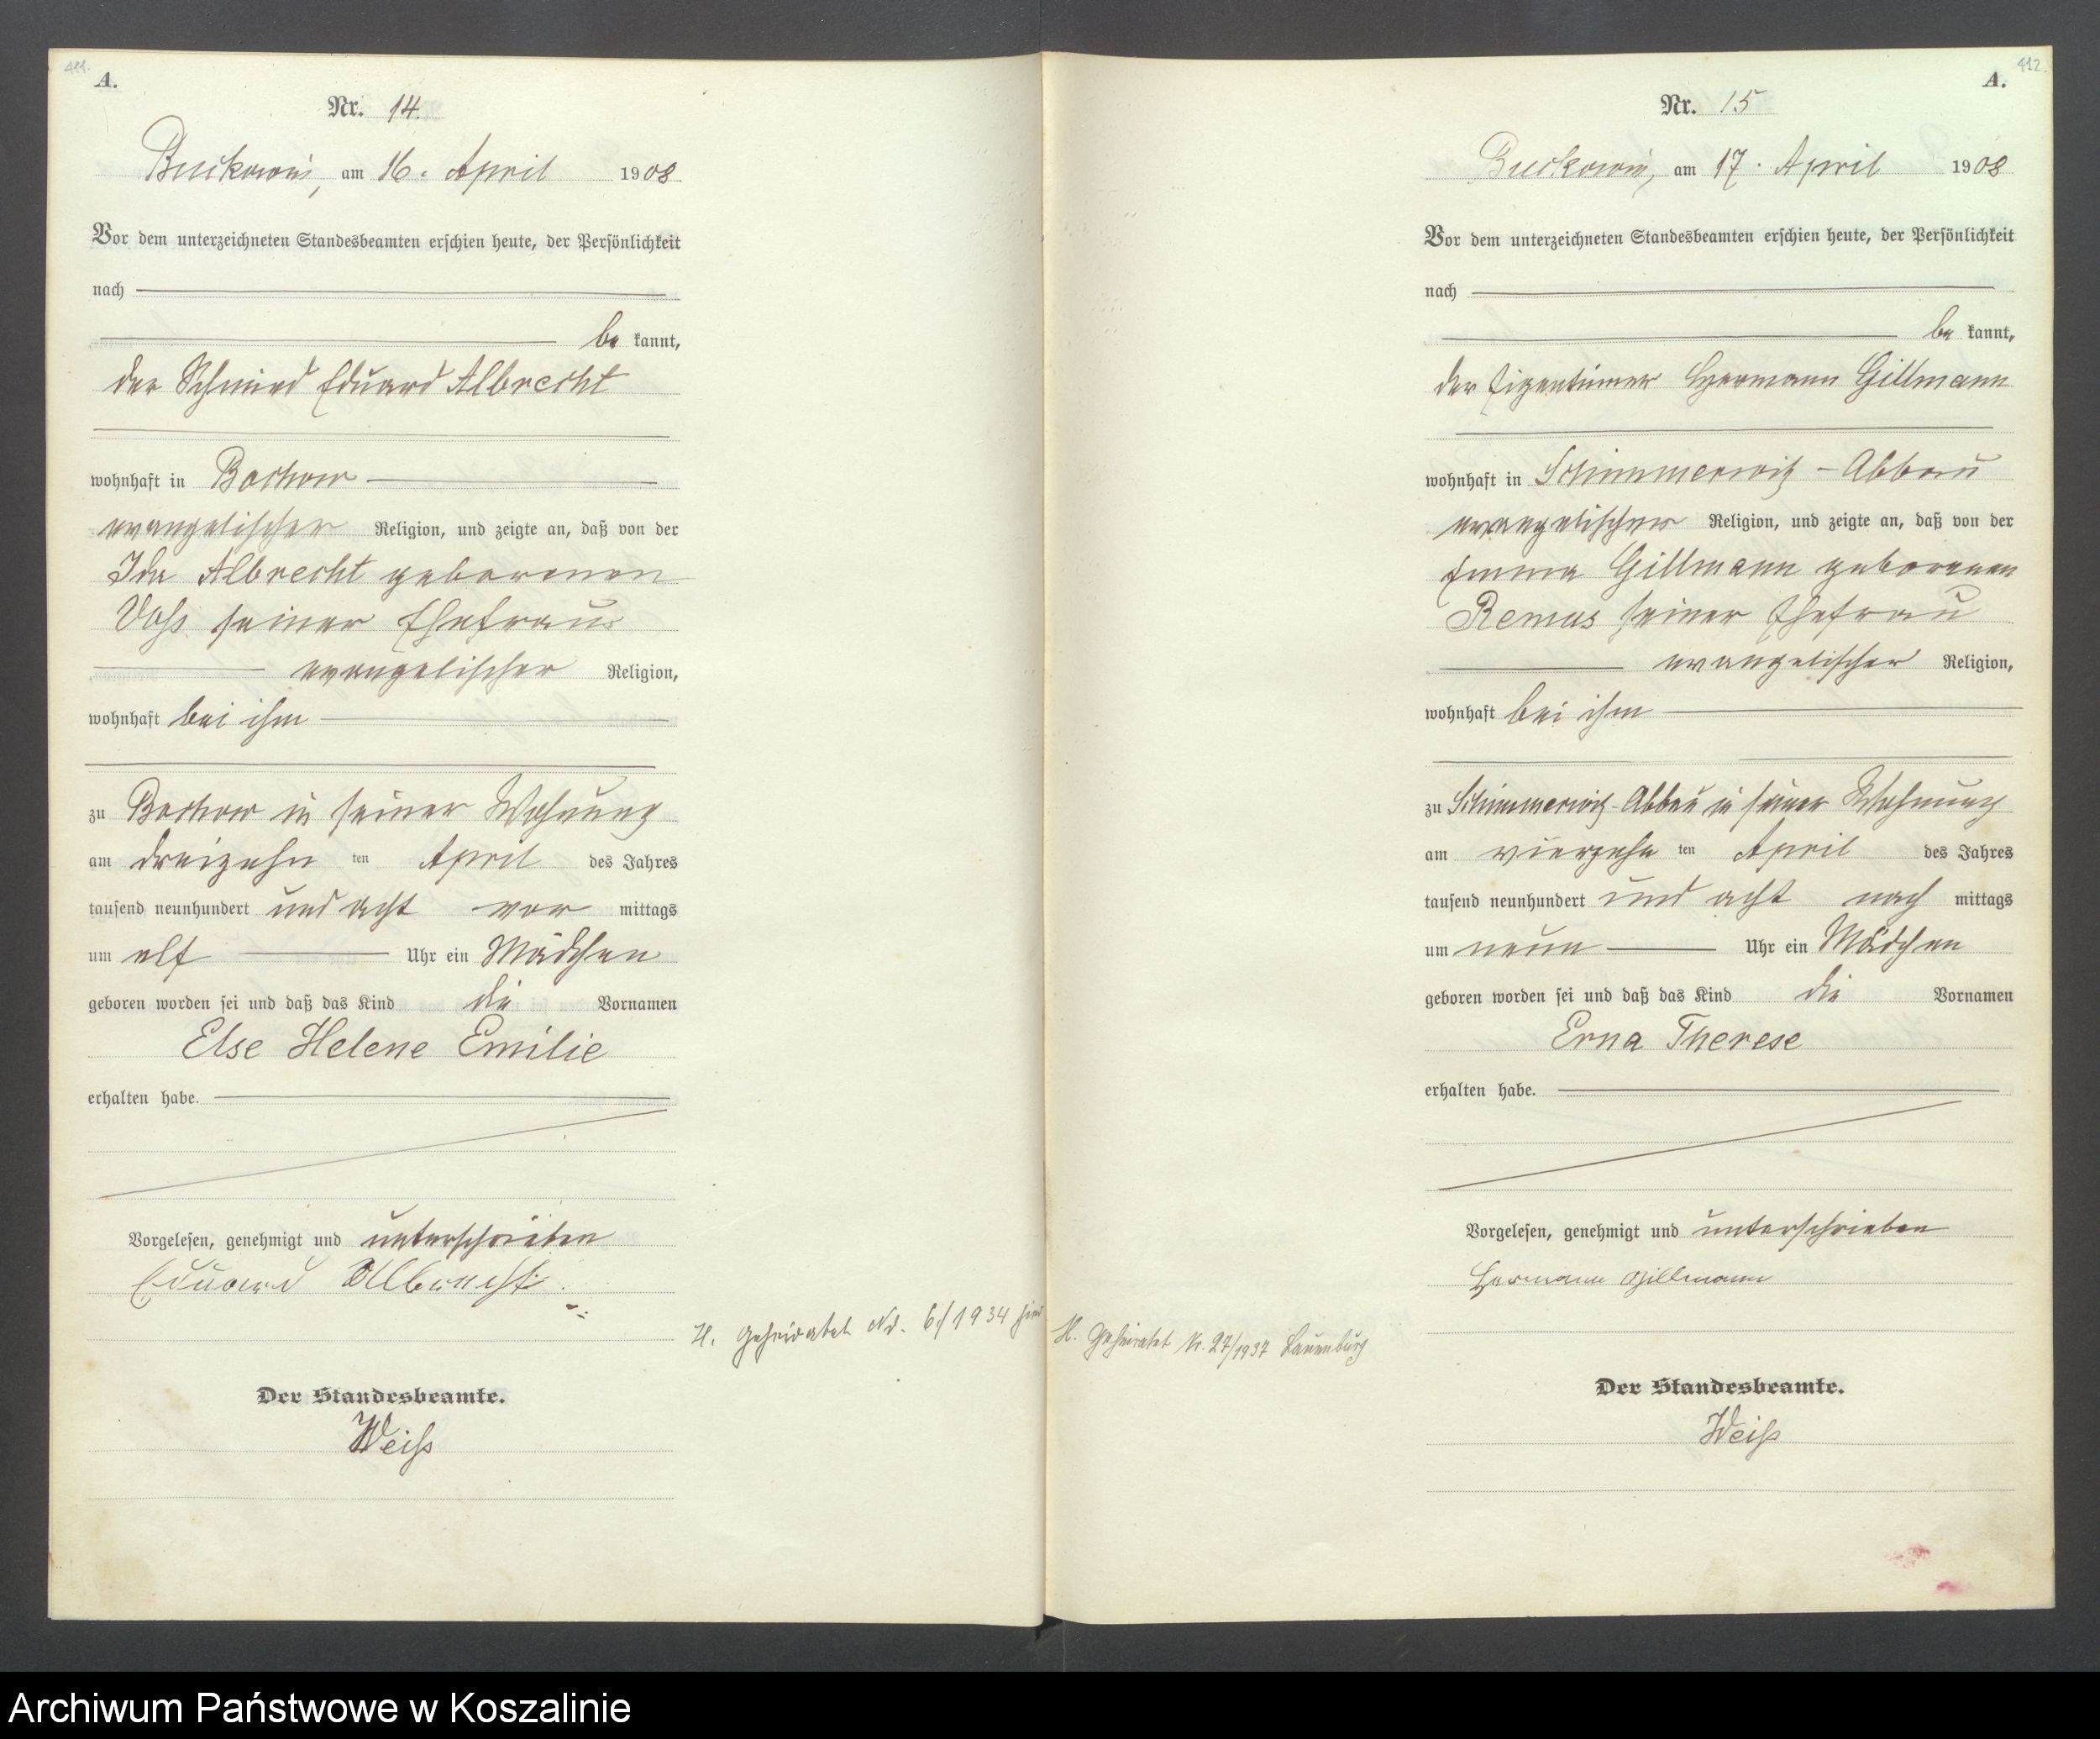 411.
A.
Nr. 14.
Buckowin, am 16. April 1908
Vor dem unterzeichneten Standesbeamten erschien heute, der Persönlichkeit
nach
be kannt,
der Schmied Eduard Albrecht
wohnhaft in Bochow
evangelischer Religion, und zeigte an, daß von der
Ida Albrecht geborenen
Voß seiner Ehefrau
evangelischer Religion,
wohnhaft bei ihm
zu Bochow in seiner Wohnung
am dreizehn ten April des Jahres
tausend neunhundert und acht vor mittags
um elf Uhr ein Mädchen
geboren worden sei und daß das Kind die Vornamen
Else Helene Emilie
erhalten habe.
Vorgelesen, genehmigt und unterschrieben
Eduard Albrecht.
H. Geheiratet Nr. 6/1934 hier
Der Standesbeamte.
Weiß
412.
A.
Nr. 15
Buckowin, am 17. April 1908
Vor dem unterzeichneten Standesbeamten erschien heute, der Persönlichkeit
nach
be kannt,
der Eigentümer Hermann Gillmann
wohnhaft in Schimmerwitz - Abbau
evangelischer Religion, und zeigte an, daß von der
Emma Gillmann geborenen
Remus seiner Ehefrau
evangelischer Religion,
wohnhaft bei ihm
zu Schimmerwitz-Abbau in seiner Wohnung
am vierzehn ten April des Jahres
tausend neunhundert und acht nach mittags
um neun Uhr ein Mädchen
geboren worden sei und daß das Kind die Vornamen
Erna Therese
erhalten habe.
Vorgelesen, genehmigt und unterschrieben
Hermann Gillmann
H. Geheiratet Nr. 27/1937 Lauenburg
Der Standesbeamte.
Weiß
Archiwum Państwowe w Koszalinie